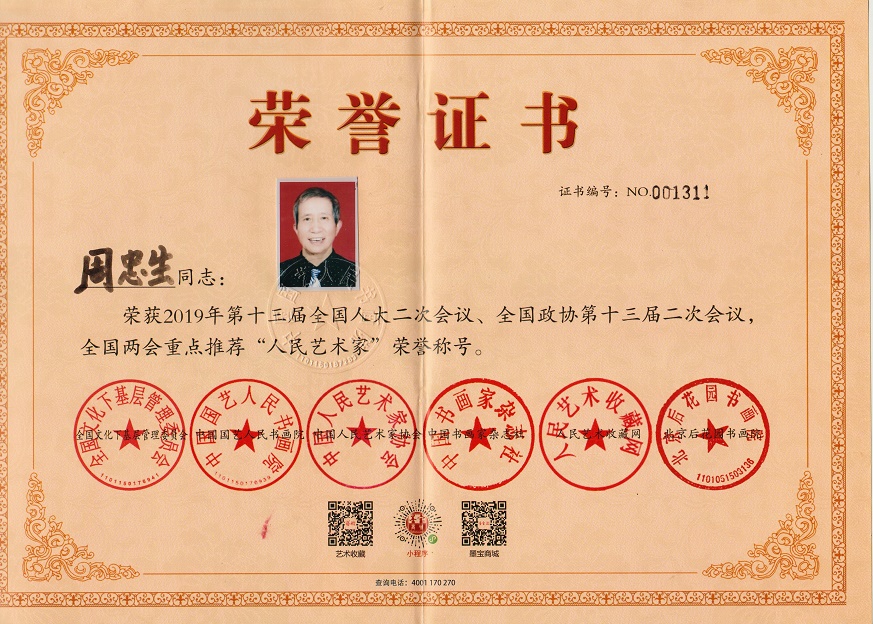 荣誉证书
证书编号：NO.001311
周忠生同志：
荣获2019年第十三届全国人大二次会议、全国政协第十三届二次会议，
全国两会重点推荐“人民艺术家”荣誉称号。
全国文化下基层管理委员会
中国国艺人民书画院
中国人民艺术家协会
中国书画家杂志社
人民艺术收藏网
北京后花园书画院
全国文化下基层管理委员会 中国国艺人民书画院 中国人民艺术家协会 中国书画家杂志社 人民艺术收藏网 北京后花园书画院
1101051503136
艺术收藏 小程序 墨宝商城
查询电话：4001 170 270